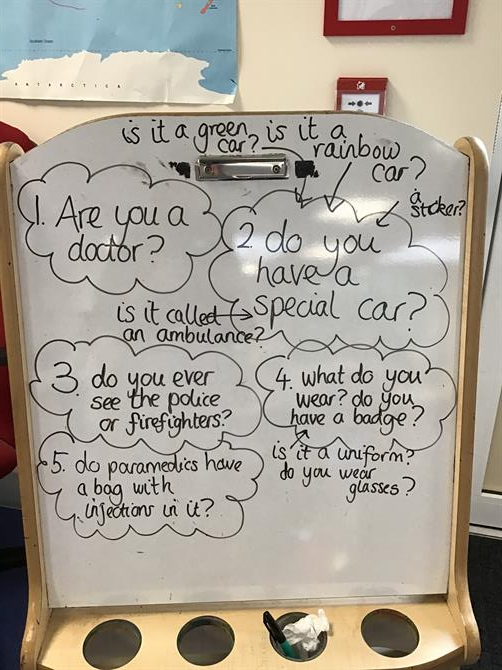 ANTARCTICA
is it a green
car?
is it a
rainbow
car?
a
sticker?
1. Are you a
doctor?
2. do you
have a
special car?
is it called
an ambulance?
3. do you ever
see the police
or firefighters?
4. what do you
wear? do you
have a badge?
is it a uniform?
do you wear
glasses?
5. do paramedics have
a bag with
injections in it?